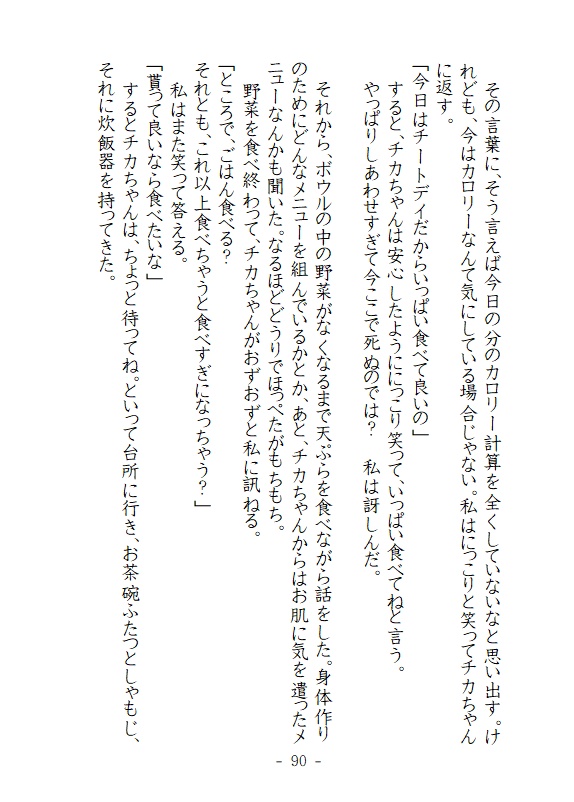 その言葉に、そう言えば今日の分のカロリー計算を全くしていないなと思い出す。け
れども、今はカロリーなんて気にしている場合じゃない。私はにっこりと笑ってチカちゃん
に返す。
「今日はチートデイだからいっぱい食べて良いの」
すると、チカちゃんは安心したようににっこり笑って、いっぱい食べてねと言う。
やっぱりしあわせすぎて今ここで死ぬのでは？　私は訝しんだ。
それから、ボウルの中の野菜がなくなるまで天ぷらを食べながら話をした。身体作り
のためにどんなメニューを組んでいるかとか、あと、チカちゃんからはお肌に気を遣ったメ
ニューなんかも聞いた。なるほどどうりでほっぺたがもちもち。
野菜を食べ終わって、チカちゃんがおずおずと私に訊ねる。
「ところで、ごはん食べる？
それとも、これ以上食べちゃうと食べすぎになっちゃう？」
私はまた笑って答える。
「貰って良いなら食べたいな」
するとチカちゃんは、ちょっと待ってね。といって台所に行き、お茶碗ふたつとしゃもじ、
それに炊飯器を持ってきた。
- 90 -